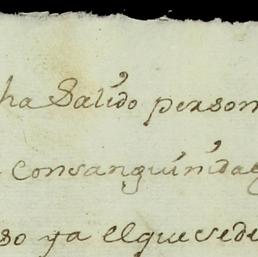 ha Salido person
consanguinidad
so ya el que se de